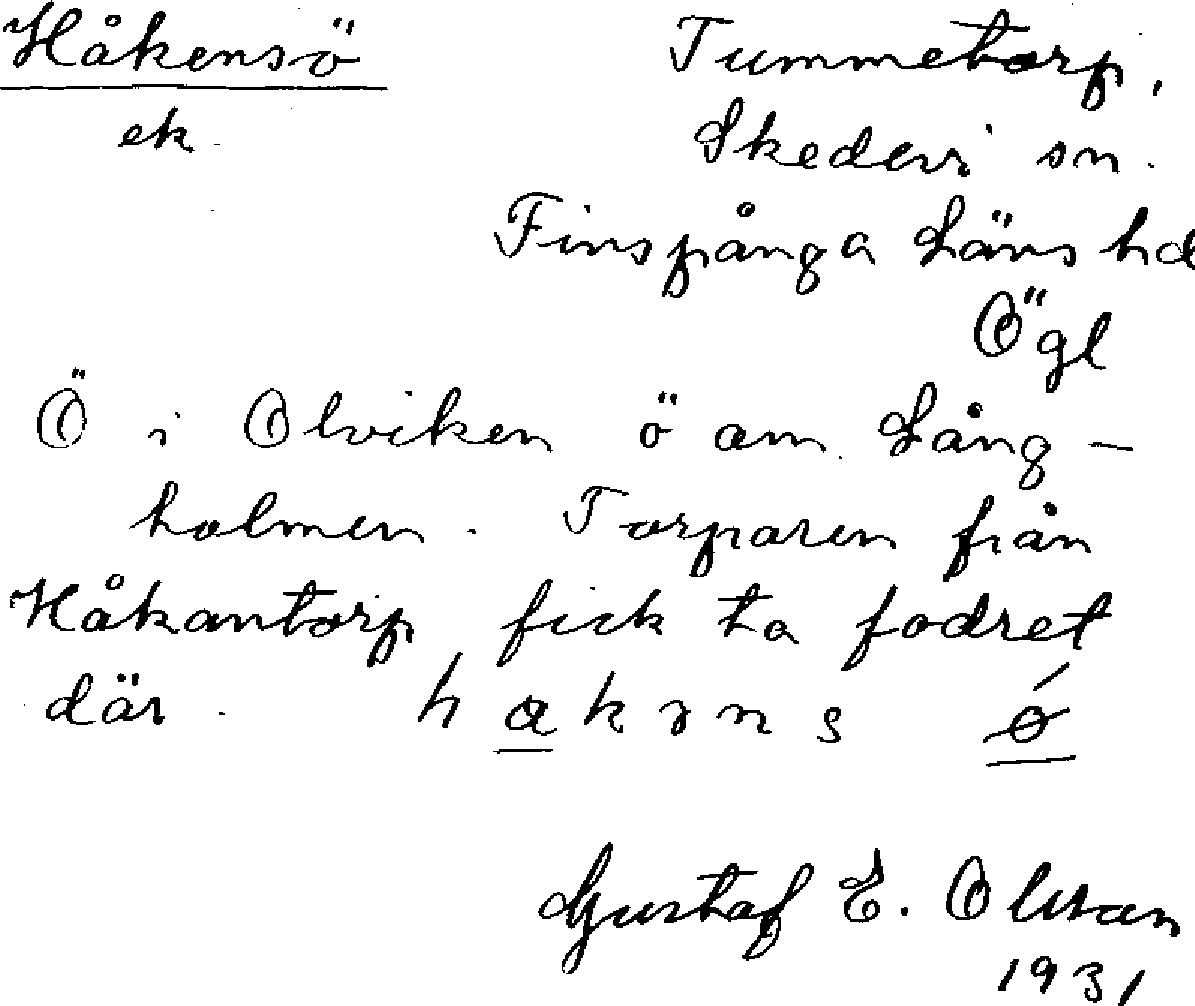 Håkensö
ek.
Tummetorp,
Skedevi sn.
Finspånga Läns hd
Ögl
Ö i Olviken ö om Lång-
holmen. Torparen från
Håkantorp fick ta fodret
där.
Gustaf E. Olsson
1931